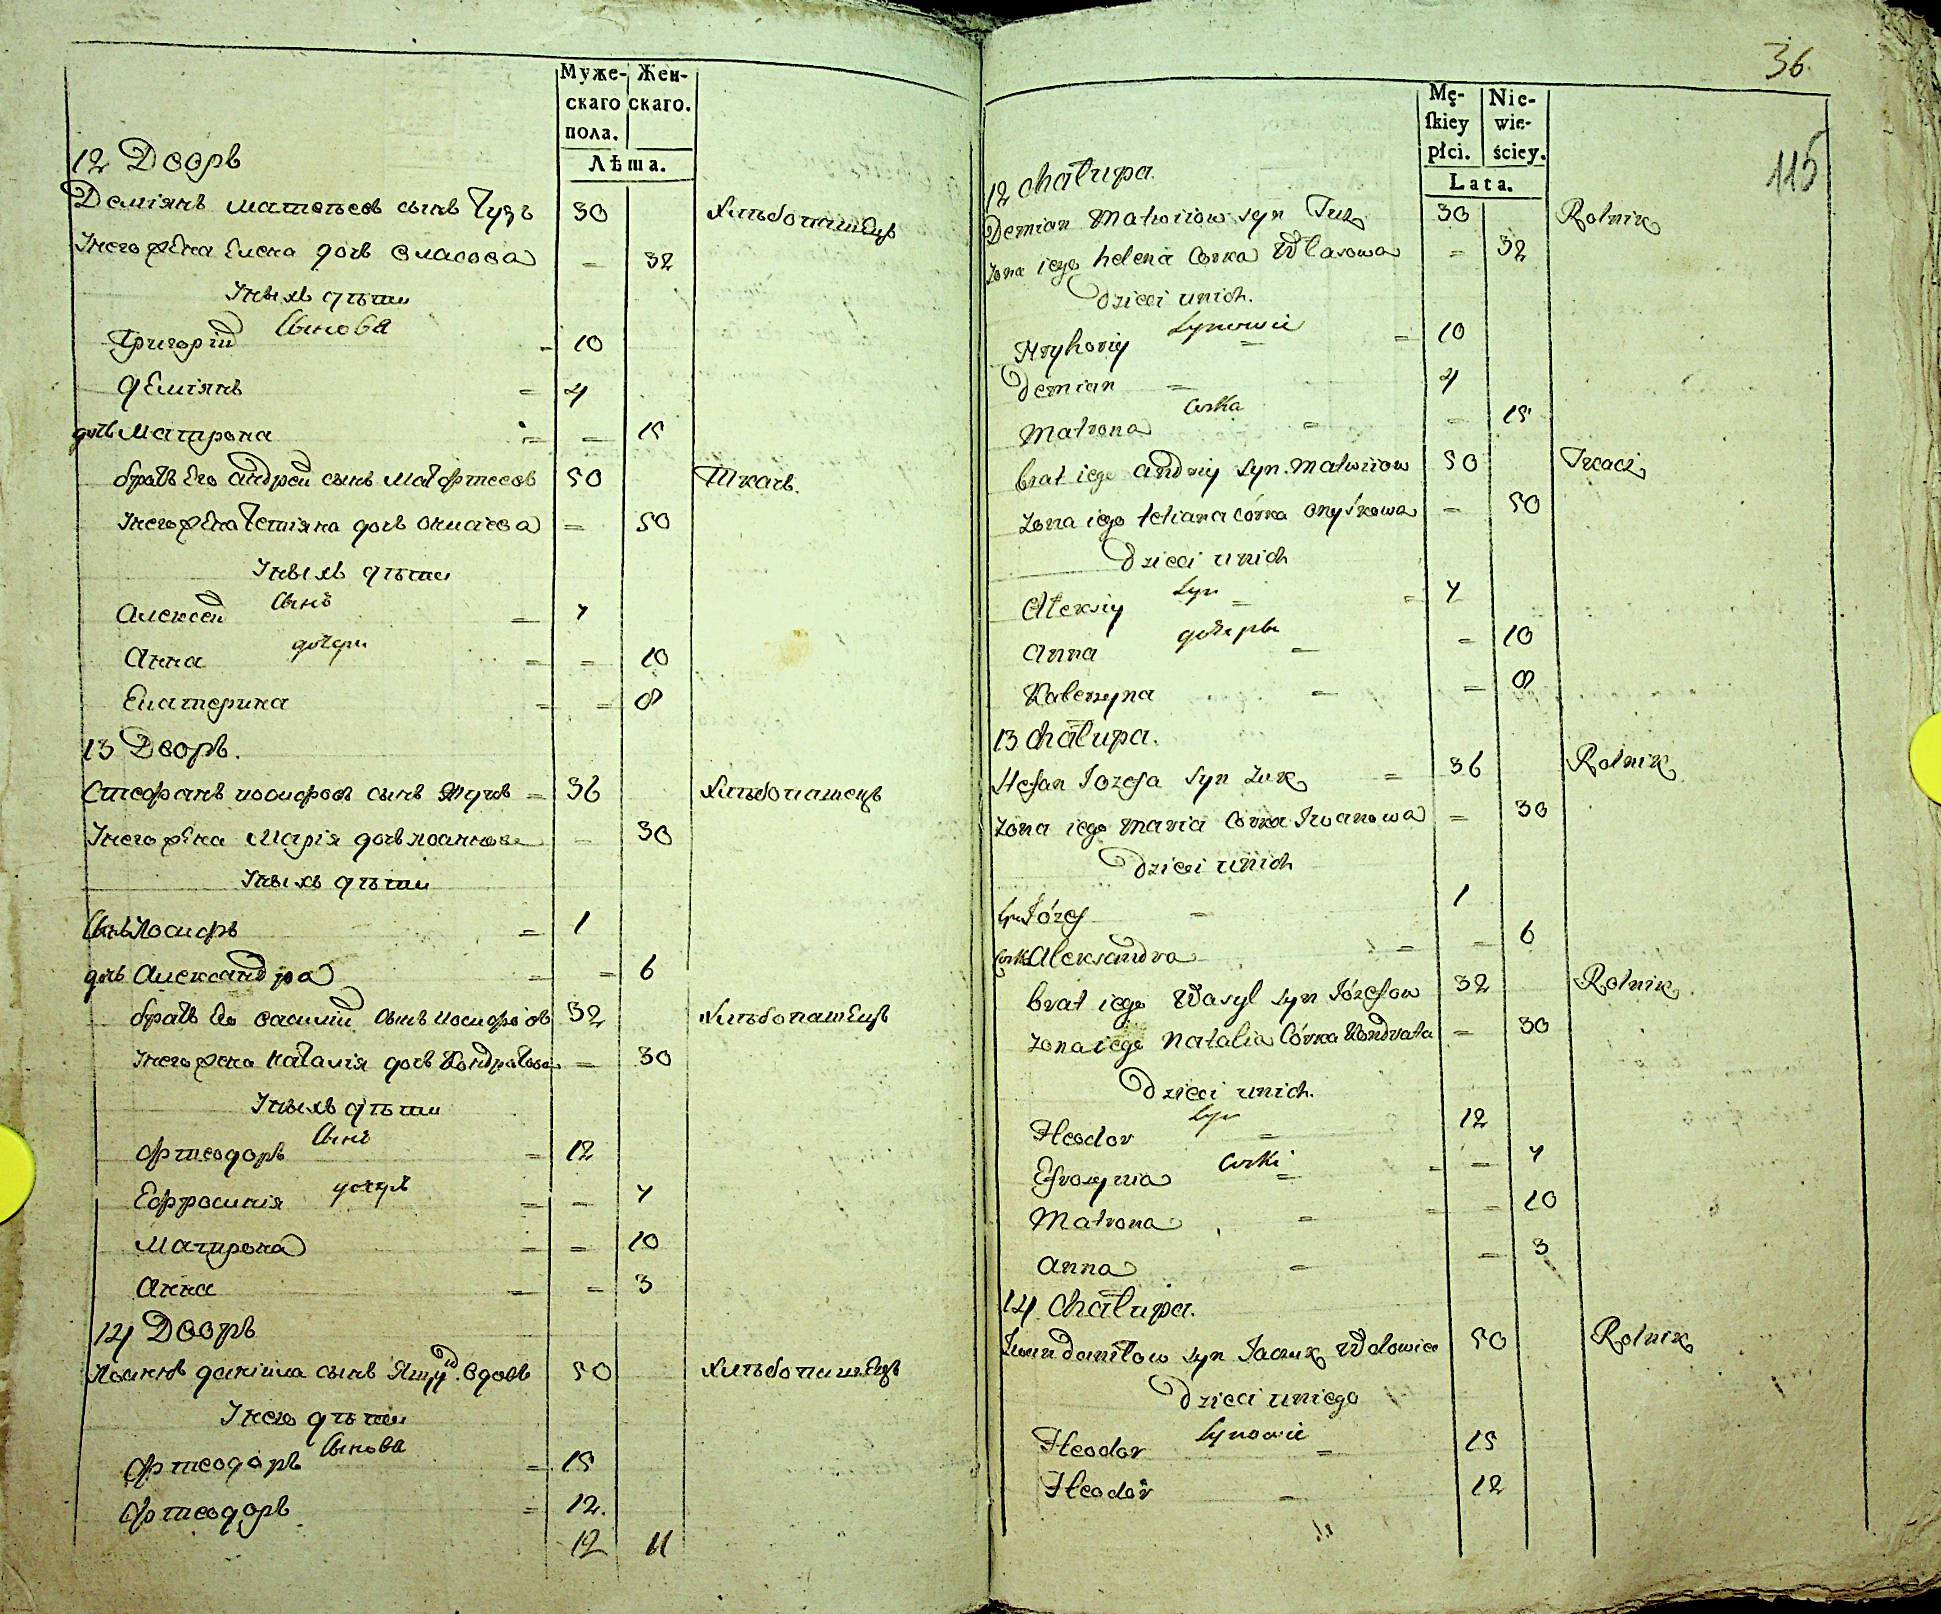 Муже-
скаго
пола.
Жен-
скаго.
Лѣта.
12 Дворъ
Деміянъ матвѣевъ сынъ Гузъ 30 Хлѣбопашецъ
Унего жена Елена дочь власова = 32
Унихъ дѣти
Сынова
Григорій = 10
Деміянъ = 4
дочь Матрона = = 15
братъ Его андрей сынъ Матфѣевъ 50 Ткачь.
Унего жена Тетіяна дочь = 50
Унихъ дѣти
Сынъ
Алексей = 7
дочери
Анна = = 10
Екатерина = = 8
13 Дворъ.
Стефанъ иосифовъ сынъ Жукъ = 36 Хлѣбопашецъ
Унего жена Марія дочь иоаннова = 30
Унихъ дѣти
Сынъ Иосифъ = 1
дочь Александра = = 6
братъ Его василий сынъ иосифовъ 32 Хлѣбопашецъ
Унего жена Наталія дочь Кондратова = 30
Унихъ дѣти
Сынъ
Фтеодоръ = 12
Ефросинія = = 7
Матрона = = 10
Анна = = 3
14 Дворъ
Иоаннъ даніила сынъ вдовъ 50 Хлѣбопашецъ
Унего дѣти
Сынова
Фтеодоръ = 15
Фтеодоръ = 12.
12 11
36.
115
Mę-
ſkiey
płci.
Nie-
wie-
ściey.
Lata.
12 chałupa.
Demian Matwiiow syn Guz 30 Rolnik
żona iego helena Corka Własowa = 32
Dzieci unich.
Synowie
Hryhoriy = = 10
Demian = 4
Corka
Matrona = = 15
brat iego andriy syn Matwiiow 50 Tkacz
żona iego tetiana córka onyśkowa = 50
Dzieci unich
Syn
Alexiy = = 7
дочеры
Anna = = 10
Katerzyna = = 8
13 chałupa.
Stefan Iozefa syn Zuk = 36 Rolnik
żona iego maria Corka Iwanowa = 30
Dzieci unich
syn Józef = 1
Corka Alexandra = = 6
brat iego Wasyl syn Józefow 32 Rolnik
żona iego Natalia Córka Kondrata = 30
Dzieci unich.
Syn
Fteodor = 12
Corki
Efrosynia = = = 7
Matrona = = = 10
Anna = = 3
14 chałupa.
Iwan daniłow syn Iacuk Wdowiec 50 Rolnik
Dzieci uniego
Synowie
Fteodor = 15
Fteodor = 12